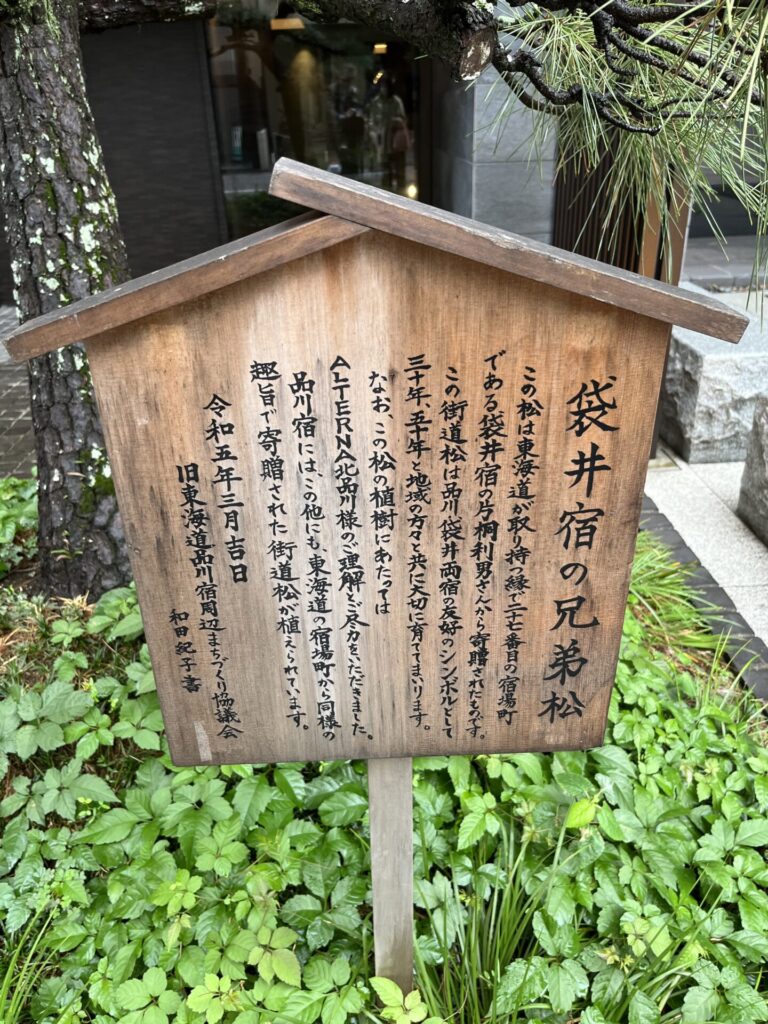 袋井宿の兄弟松
この松は東海道が取り持つ縁で二十七番目の宿場町
である袋井宿の片桐利男さんから寄贈されたものです。
この街道松は品川・袋井両宿の友好のシンボルとして
三十年、五十年と地域の方々と共に大切に育ててまいります。
なお、この松の植樹にあたっては
ALTERNA北品川様のご理解とご尽力をいただきました。
品川宿には、この他にも、東海道の宿場町から同様の
趣旨で寄贈された街道松が植えられています。
令和五年三月吉日
旧東海道品川宿周辺まちづくり協議会
和田紀子書